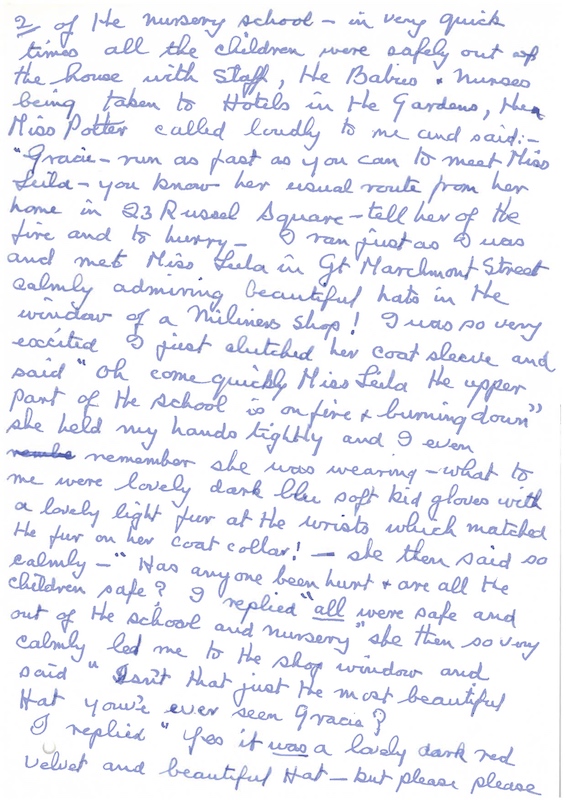 2 of the nursery school – in very quick
times all the children were safely out of
the house with Staff, the Babies & Nurses
being taken to Hotels in the Gardens, then
Miss Potter called loudly to me and said:–
"Gracie – run as fast as you can to meet Miss
Leila – you know her usual route from her
home in 23 Russel Square – tell her of the
fire and to hurry – I ran just as I was
and met Miss Leila in Gt Marchmont Street
calmly admiring beautiful hats in the
window of a Miliners Shop! I was so very
excited I just clutched her coat sleeve and
said "Oh come quickly Miss Leila the upper
part of the school is on fire & burning down"
she held my hands tightly and I even
remember she was wearing – what to
me were lovely dark blu soft kid gloves with
a lovely light fur at the wrists which matched
the fur on her coat collar! – she then said so
calmly – "Has anyone been hurt & are all the
children safe? I replied "all were safe and
out of the school and nursery" she then so very
calmly led me to the shop window and
said "Isn't that just the most beautiful
Hat you've ever seen Gracie?
I replied "Yes it was a lovely dark red
velvet and beautiful Hat – but please please